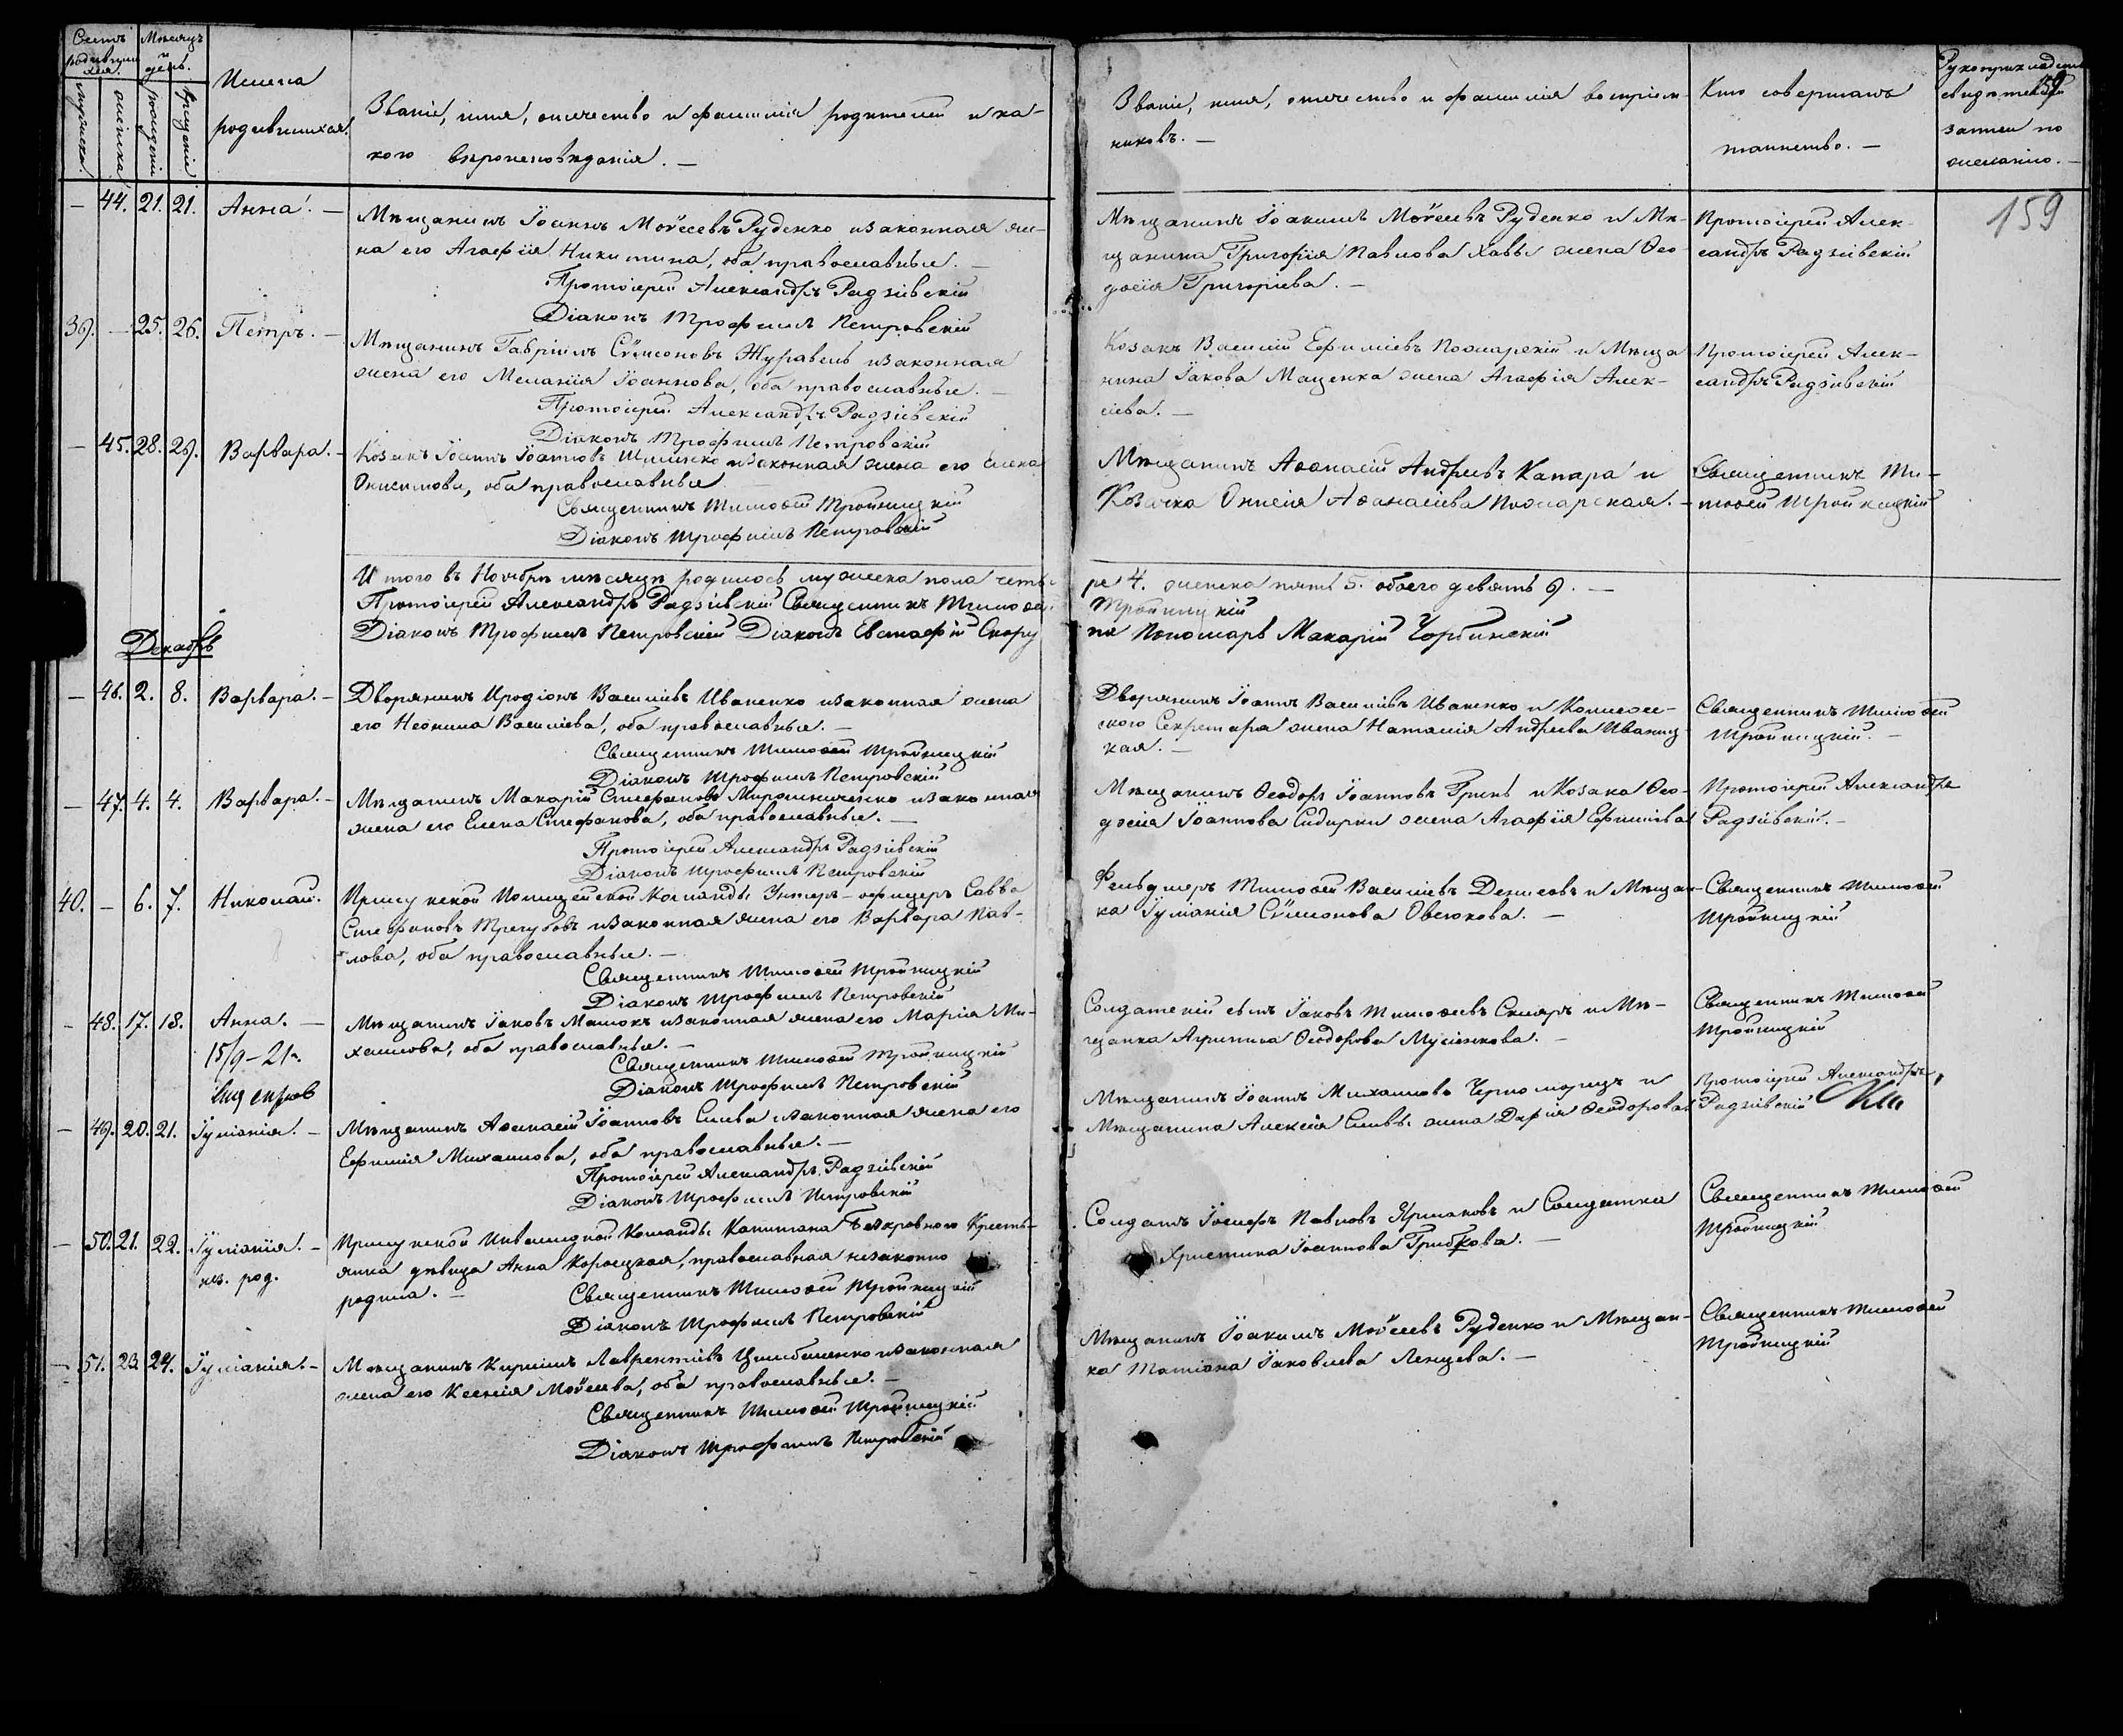 Счетъ родившихся.
Мѣсяцъ и день.
мужеска.
женска
рожденія
крещенія
Имена
родившихся.
Званіе, имя, отчество и фамилія родителей и ка-
кого вѣроисповѣданія. —
Званіе, имя, отчество и фамилія воспріем-
никовъ. —
Кто совершалъ
таинство. —
Рукоприкладство
свидѣтелей
записи по
желанію. —
159
— 44. 21. 21. Анна. —
Мѣщанинъ Іоакимъ Моѵсеевъ Руденко и законная же-
на его Агафія Никитина, оба православные. —
Протоіерей Александръ Радзіевскій
Діаконъ Трофимъ Петровскій
Мѣщанинъ Іоакимъ Моѵсеевъ Руденко и Мѣ-
щанина Григорія Павлова Хавы жена Ѳео-
досія Григоріева. —
Протоіерей Алек-
сандръ Радзіевскій
39. — 25. 26. Петръ. —
Мѣщанинъ Гавріилъ Сѵмеоновъ Журавель и законная
жена его Меланія Іоаннова, оба православные. —
Протоіерей Александръ Радзіевскій
Діаконъ Трофимъ Петровскій
Козакъ Василій Ефиміевъ Пожарскій и Мѣща
нина Іакова Маценка жена Агафія Алек-
сіева. —
Протоіерей Алек-
сандръ Радзіевскій
— 45. 28. 29. Варвара. —
Козакъ Іоаннъ Іоанновъ и законная жена его Елена
Онисимова, оба православные —
Священникъ Тимоѳей Тройницкій
Діаконъ Трофимъ Петровскій
Мѣщанинъ Аѳанасій Андреевъ Капара и
Козачка Онисія Аѳанасіева Пожарская. —
Священникъ Ти-
моѳей Тройницкій
Итого въ Ноябрѣ мѣсяцѣ родилось мужеска пола четы-
ре 4. женска пять 5. обоего девять 9. —
Протоіерей Александръ Радзіевскій Священникъ Тимоѳей
Тройницкій
Діаконъ Трофимъ Петровскій Діаконъ Евстафій
Пономарь Макарій Чорбинскій
Декабрь
— 46. 2. 8. Варвара. —
Дворянинъ Иродіонъ Василіевъ Иваненко и законная жена
его Неонила Василіева, оба православные. —
Священникъ Тимоѳей Тройницкій
Діаконъ Трофимъ Петровскій
Дворянинъ Іоаннъ Василіевъ Иваненко и Коллеж-
ского Секретаря жена Наталія Андреева Иваниц-
кая. —
Священникъ Тимоѳей
Тройницкій. —
— 47. 4. 4. Варвара. —
Мѣщанинъ Макарій Стефановъ Мирошниченко и законная
жена его Елена Стефанова, оба православные. —
Протоіерей Александръ Радзіевскій
Діаконъ Трофимъ Петровскій
Мѣщанинъ Ѳеодоръ Іоанновъ Гринь и Козака Ѳео-
досія Іоаннова Сидирки жена Агафія Ефиміева
Протоіерей Александръ
Радзіевскій. —
40. — 6. 7. Николай.
Прилукской Полицейской Команды Унтеръ-офицеръ Савва
Стефановъ Трегубовъ и законная жена его Варвара Пав-
лова, оба православные. —
Священникъ Тимоѳей Тройницкій
Діаконъ Трофимъ Петровскій
Фельдшеръ Тимоѳей Василіевъ Денисовъ и Мѣщан-
ка Іуліанія Сѵмеонова Овсюкова. —
Священникъ Тимоѳей
Тройницкій
— 48. 17. 18. Анна. —
15/9-21
Мѣщанинъ Іаковъ Машокъ и законная жена его Марія Ми-
хаилова, оба православные. —
Священникъ Тимоѳей Тройницкій
Діаконъ Трофимъ Петровскій
Солдатскій сынъ Іаковъ Тимоѳеевъ Скляръ и Мѣ-
щанка Агрипина Ѳеодорова Мусіенкова. —
Священникъ Тимоѳей
Тройницкій
— 49. 20. 21. Іуліанія. —
Мѣщанинъ Аѳанасій Іоанновъ Слива и законная жена его
Ефимія Михаилова, оба православные. —
Протоіерей Александръ Радзіевскій
Діаконъ Трофимъ Петровскій
Мѣщанинъ Іоаннъ Михаиловъ Черноморецъ и
Мѣщанина Алексія Сливы жена Дарія Ѳеодорова
Протоіерей Александръ
Радзіевскій
— 50. 21. 22. Іуліанія. —
не. род.
Прилукской Инвалидной Команды Капитана Безкровного Кресть-
янка дѣвица Анна Корецкая, православная незаконно
родила. —
Священникъ Тимоѳей Тройницкій
Діаконъ Трофимъ Петровскій
Солдатъ Іосифъ Павловъ Ярмаковъ и Солдатка
Христина Іоаннова Грибкова. —
Священникъ Тимоѳей
Тройницкій
— 51. 23. 24. Іуліанія. —
Мѣщанинъ Кириллъ Лаврентіевъ Цимбаленко и законная
жена его Ксенія Моѵсеева, оба православные. —
Священникъ Тимоѳей Тройницкій
Діаконъ Трофимъ Петровскій
Мѣщанинъ Іоакимъ Моѵсеевъ Руденко и Мѣщан-
ка Татіана Іаковлева Ленцева. —
Священникъ Тимоѳей
Тройницкій